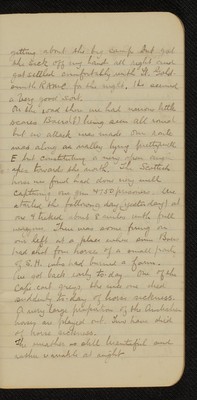 getting about the big camp but got
the kick off my hands all right and
got settled comfortably with Lt. Gold-
smith RAMC for the night. He seemed
a very good sort.
On the road there we had various little
scares (Boers(?) being seen all round
but no attack was made. Our route
was along a valley lying
E but constituting a very
apex towards the north. The Scottish
have we found had done very well
capturing one gun 4750 prisoner. We
started the following day (yesterday) at
one & trekked about 8 miles with full
wagons. There was some firing on
our left at a place where some Boers
had shot four horses of a small party
of S.H. who had burned a farm.
We got back early to day. One of the
Cape cart greys, the mule one died
suddenly to day of horse sickness.
A very large proportion of the Australian
horses are played out. Two have died
of horse sickness.
The weather is still beautiful and
rather variable at night